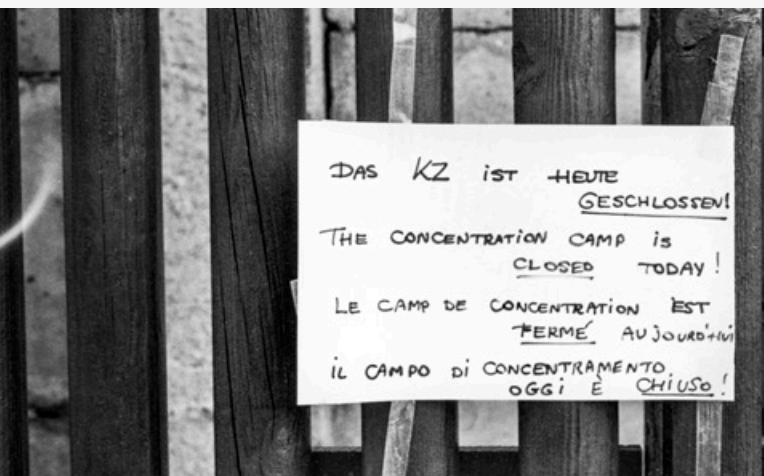 DAS KZ iST HEUTE
GESCHLOSSEN!
THE CONCENTRATION CAMP iS
CLOSED TODAY!
LE CAMP DE CONCENTRATION EST
FERMÉ AUJOURD'HUI
iL CAMPO Di CONCENTRAMENTO
OGGi È CHIUSO!